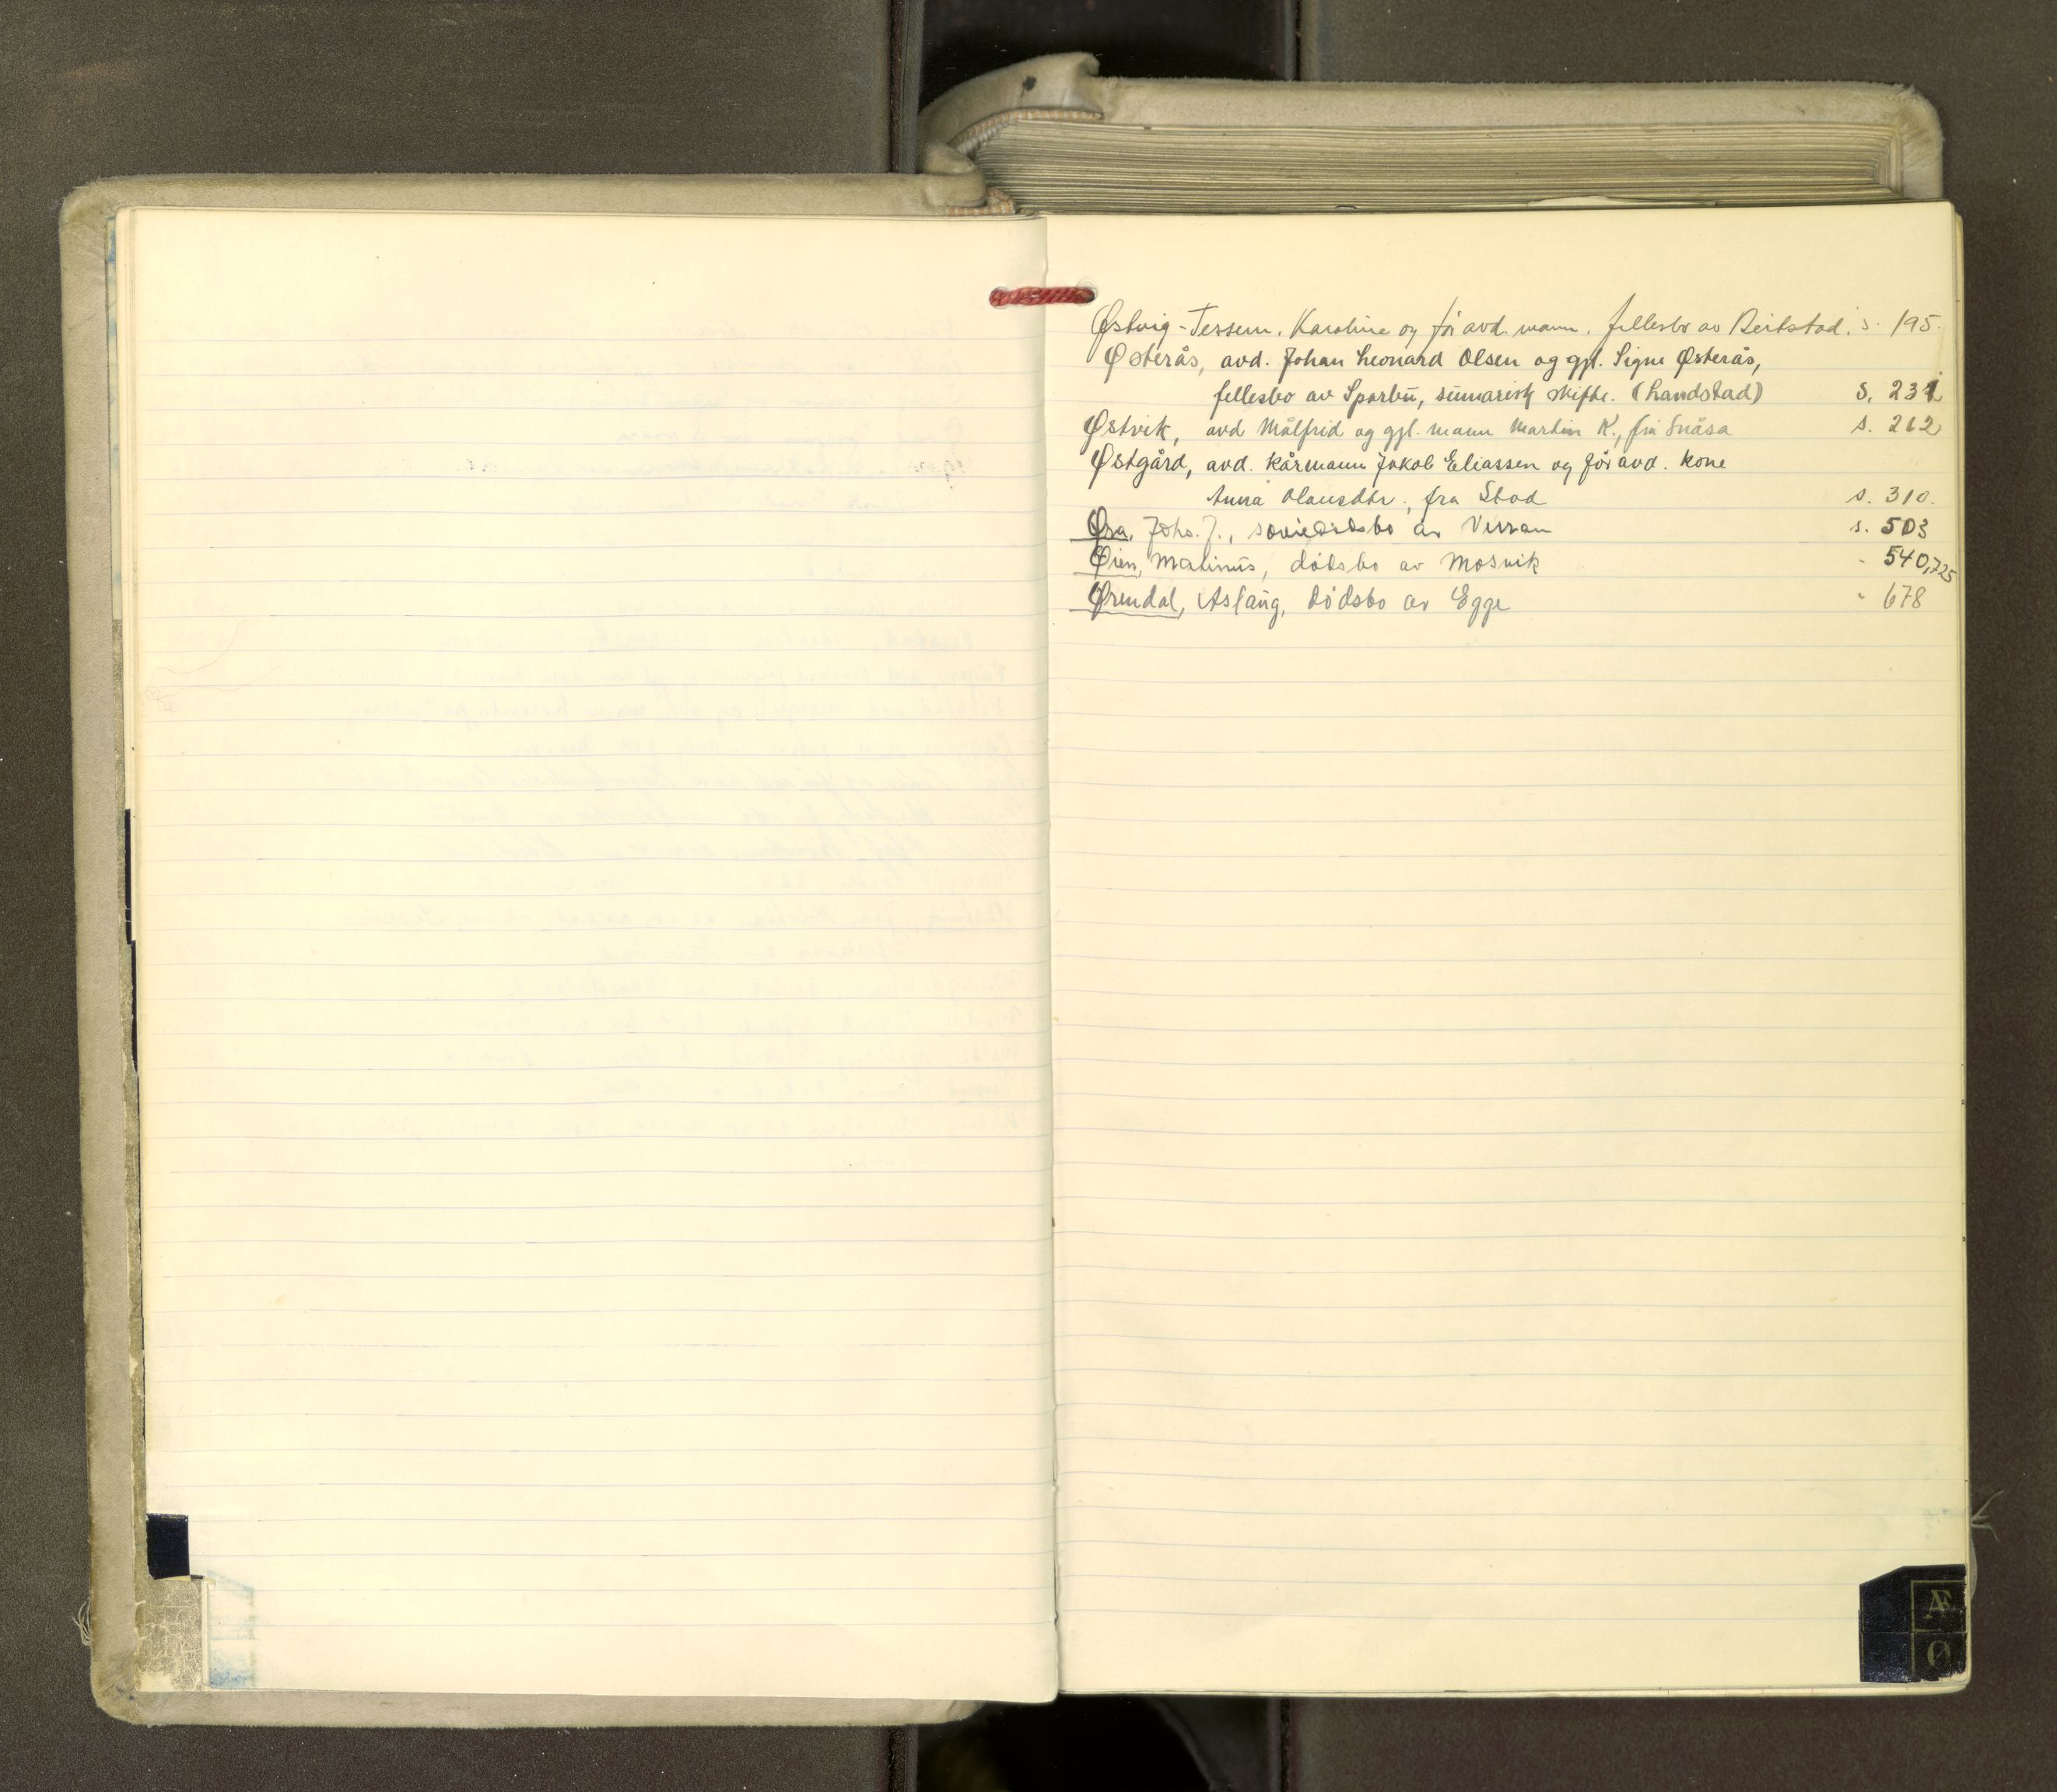 Østvig-Tessem, Karoline og før avd. mann, fellesbo av Beitstad. s. 195.
Østerås, avd. Johan Leonard Olsen og gjl. Signe Østerås,
fellesbo av Sparbu, sumarisk skifte. (Landstad) s. 231
Østvik, avd Målfrid og gjl. mann Martin K., fra Snåsa s. 262
Østgård, avd. kårmann Jakob Eliassen og før avd. kone
Anna Olausdtr., fra Stod s. 310.
Øra, Johs. J., av Verran s. 503
Øien, Matinus, dødsbo av Mosvik - 540,725
Ørendal, Aslaug, dødsbo av Egge " 678
Æ
Ø